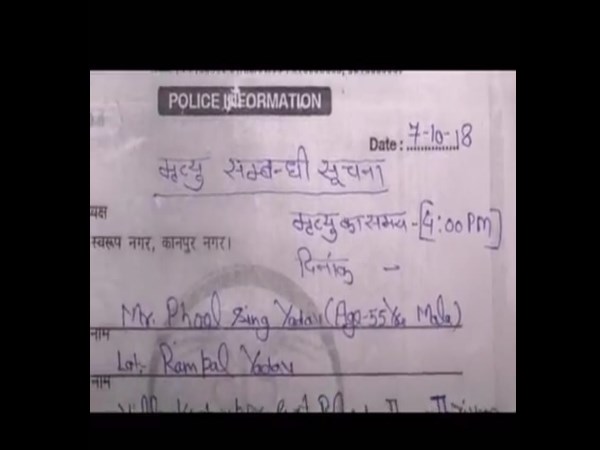 POLICE INFORMATION
Date : 7-10-18
मृत्यु सम्बन्धी सूचना
मृत्यु का समय -
:00 PM]
स्वरूप नगर, कानपुर नगर।
दिनांक -
Mr. Phool Sing Yadav (Age-55 Yrs Male)
नाम
Lat. Rampal Yadav
नाम